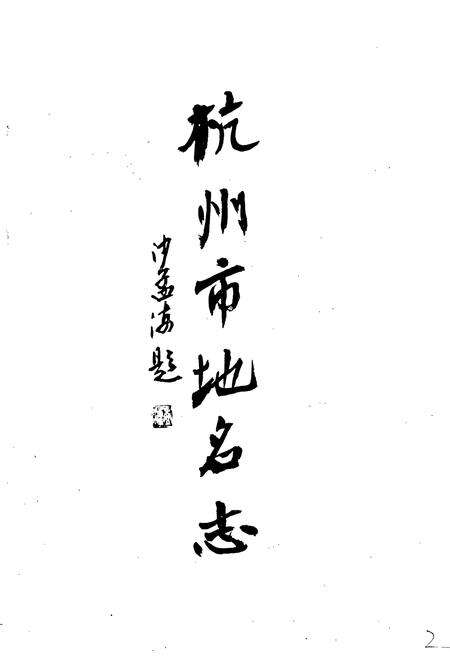 杭州市地名志
沙孟海题
2